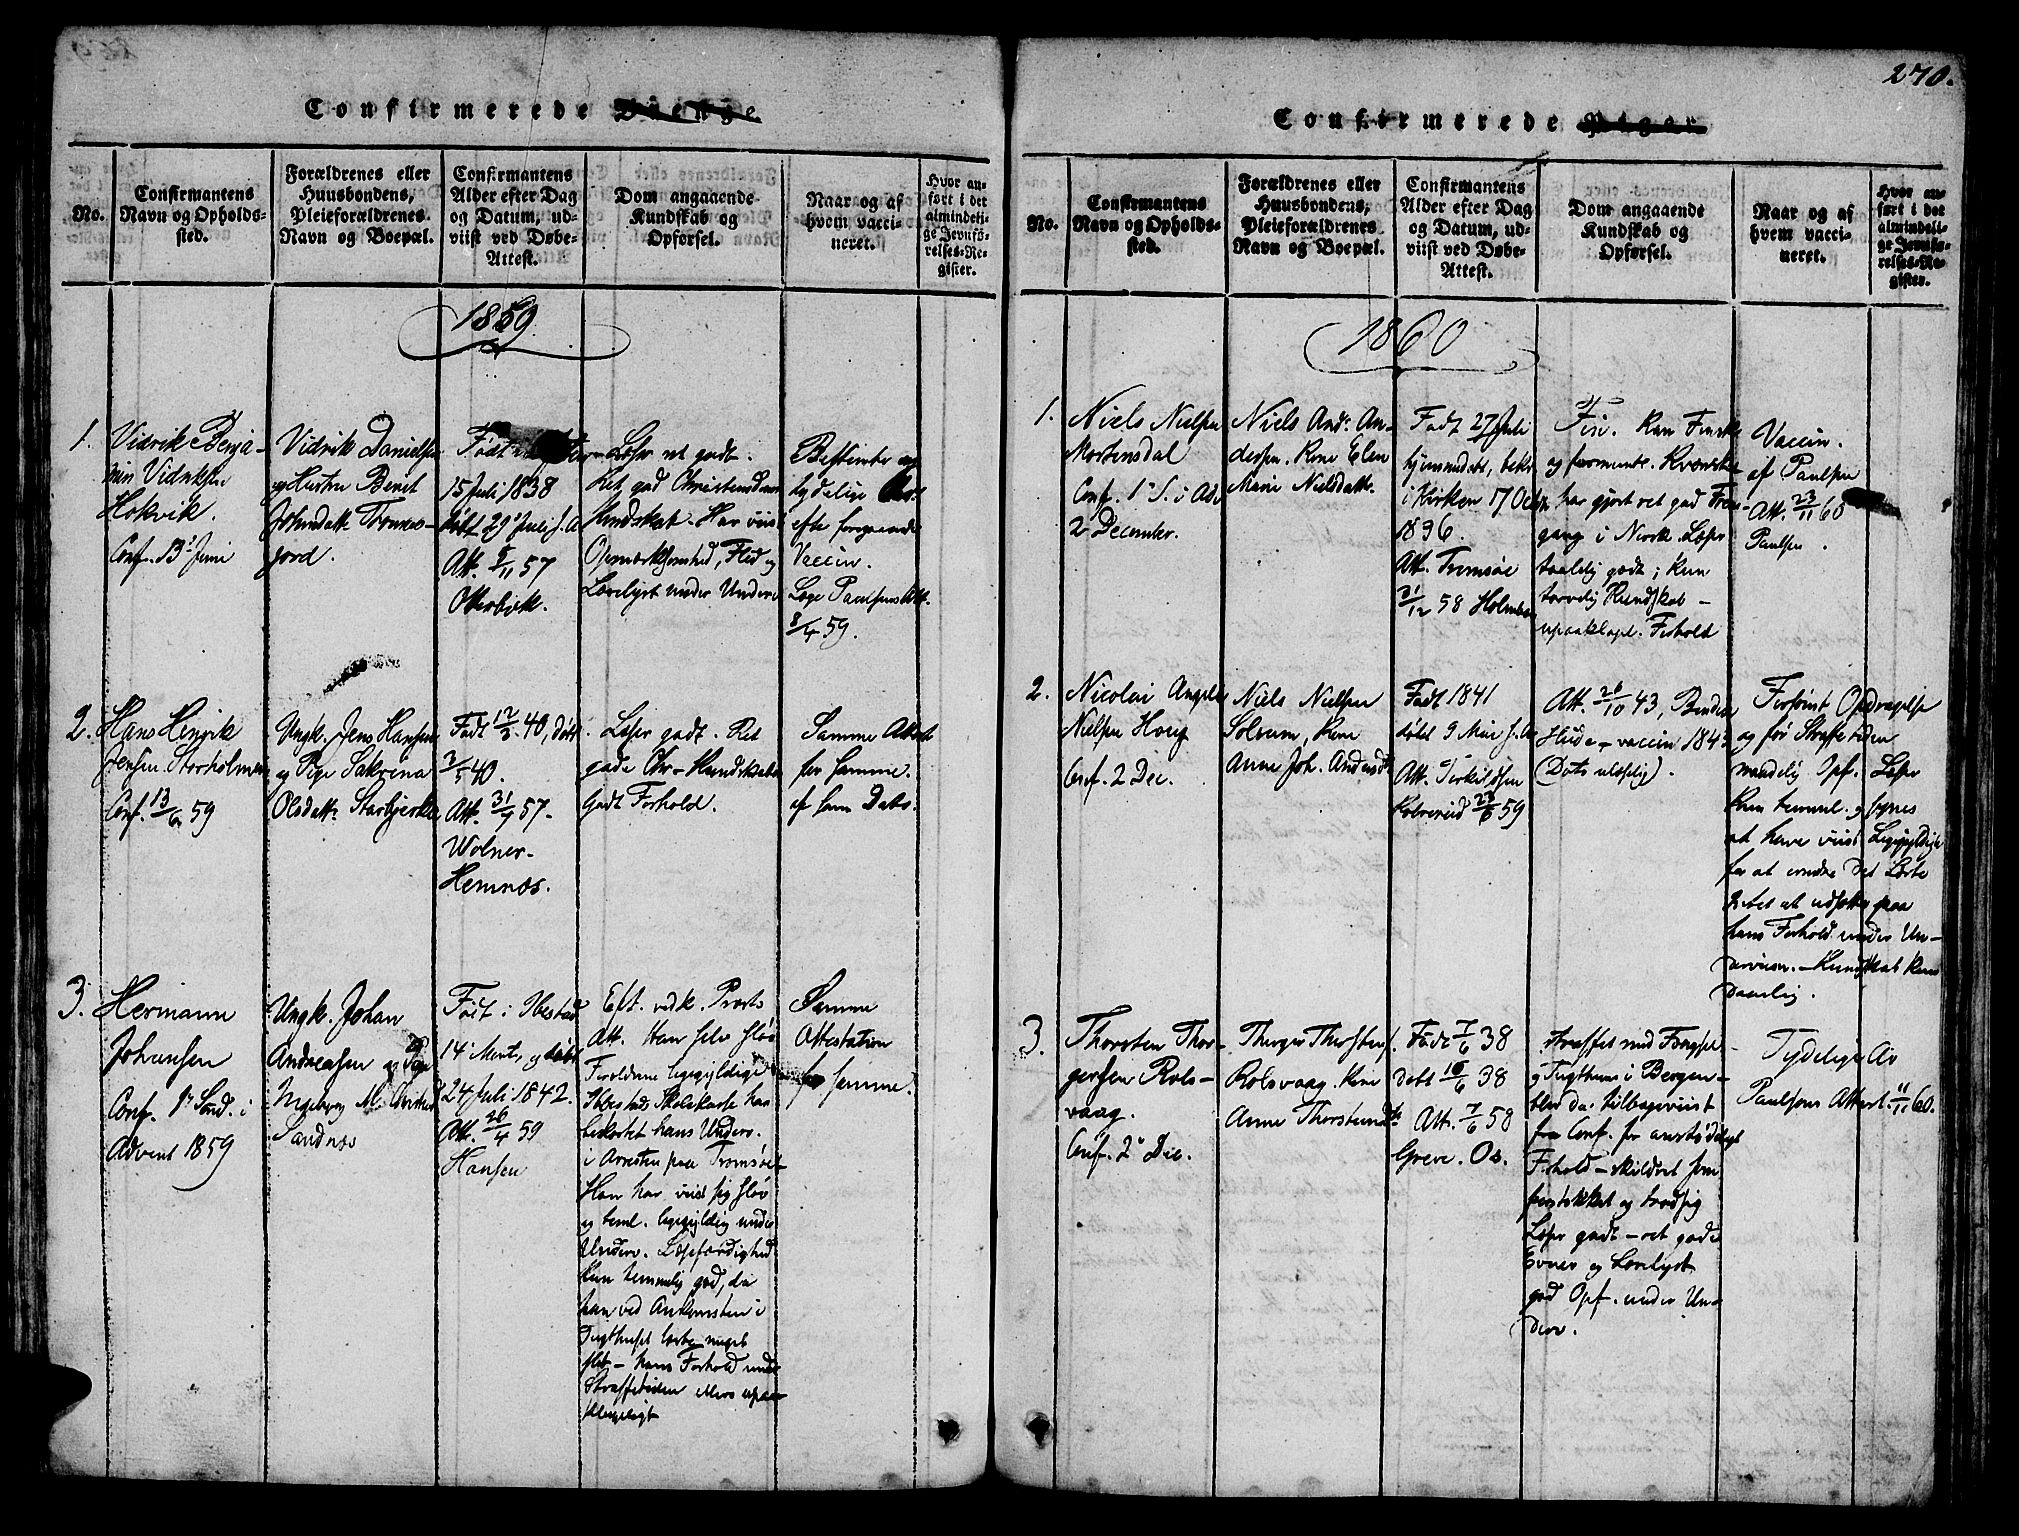 Confirmerede Drenge
No.
Confirmantens
Navn og Opholds-
sted.
Forældrenes eller
Huusbondens,
Pleieforældrenes
Navn og Boepæl.
Confirmantens
Alder efter Dag
og Datum, ud-
viist ved Døbe-
Attest.
Dom angaaende
Kundskab og
Opførsel.
Naar og af
hvem vacci-
neret.
Hvor an-
ført i det
almindeli-
ge Jevnfö-
relses-Re-
gister.
1859
1.
Vidrik Benja-
min Vidriksen
Hokvik.
Conf. 13de Juni
Vidrik Danielsen
og Hustru Beret
Johnsdatt. Tromes-
jord.
Født
15 Juli 1838
døbt 29de Juli s. A.
Att. 5/11 57
Otterbek.
Læser ret godt.
Ret god Christendoms
Kundskab. Har viist
Opmærksomhed, Flid og
Lærelyst under Underv.
Bestemte og
tydelige
efter foregaaende
Vaccin.
Læge Paulsens Att.
8/4 59.
2.
Hans Henrik
Jensen Storholmen
Conf. 13/6 59
Ungk. Jens Hansen
og Pige Sakrina
Olsdatt. Storbjerke
Født 12/3 40, døbt
3/5 40.
Att. 31/7 57.
Wolner-
Hemnæs.
Læser godt. Ret
gode Chr-Kundskaber
Godt Forhold.
Samme Attest
for samme.
af samme Dato.
3.
Hermann
Johansen
Conf. 1ste Sønd. i
Advent 1859
Ungk. Johan
Andreasen og Pige
Ingeborg M.
Sandnæs
Født i Ibestad
14 Marts, og døbt
24 Juli 1842.
Att. 26/4 59
Hansen
Eft. vedk. Præsts
Att. Han selv sløv
Forældrene ligegyldige
Ibestads Skolekasse har
bekostet hans Underv.
i Arresten paa Tromsøe-
Han har viist sig sløv
og teml. ligegyldig under
Underv. Læsefærdighed
kun temmelig god, da
han ved Ankomsten i
Tugthuset læste meget
slet - hans Forhold under
Straffetiden ellers upaa-
klageligt
Samme
Attestation
for samme.
270.
Confirmerede Piger
No.
Confirmantens
Navn og Opholds-
sted.
Forældrenes eller
Huusbondens,
Pleieforældrenes
Navn og Boepæl.
Confirmantens
Alder efter Dag
og Datum, ud-
viist ved Døbe-
Attest.
Dom angaaende
Kundskab og
Opførsel.
Naar og af
hvem vacci-
neret.
Hvor an-
ført i det
almindeli-
ge Jevnfö-
relses-Re-
gister.
1860
1.
Niels Nielsen
Mortensdal
Conf. 1ste S. i Adv
2 December.
Niels And. An-
dersen. Kone Elen
Marie Nielsdatt.
Født 27 Juli
hjemmedøbt, bekr.
i Kirken 17 Octbr
1836.
Att. Tromsøe
31/12 58 Holmboe
Fin. Kan Finsk
og formentl. Kvænsk
har gjort ret god Frem-
gang i Norsk. Læser
taalelig godt; kun
tarvelig Kundskab -
upaaklagel. Forhold
Vaccin.
af Paulsen
Att. 23/11 60
Paulsen.
2.
Nicolai Angel
Nielsen Houg
Conf. 2 Dec.
Niels Nielsen
Solum, Kone
Anne Joh. Andersd
Født 1841
døbt 9 Mai s. A.
Att. Torkildsen
Kolvereid 23/6 59
Att. 26/10 43,
vaccin 1843
(Dato ulæselig).
Forsømt Opdragelse
og før Straffetiden
maadelig Opf. Læser
kun temmel. og synes
at have viist Ligegyldighed
for at erindre det Lærte
Intet at udsætte paa
hans Forhold under Un-
derviisn. - Kundskab kun
daarlig.
3.
Thorsten Thor-
gersen Rols-
vaag.
Conf. 2de Dec.
Thorger Thorstens.
Rolsvaag. Kone
Anne Thorsteinsdtr
Født 7/6 38
Døbt 10/6 38
Att. 7/6 58
Greve. Os.
straffet med Fængsel
og Tugthuus i Bergen -
blev da tilbageviist
fra Conf. for anstødeligt
Forhold - skildret som
forstokket og trodsig
Læser godt - ret gode
Evner og Lærelyst
god Opf. under Un-
derv.
Tydelige Ar
Paulsens Attest. 11/11 60.